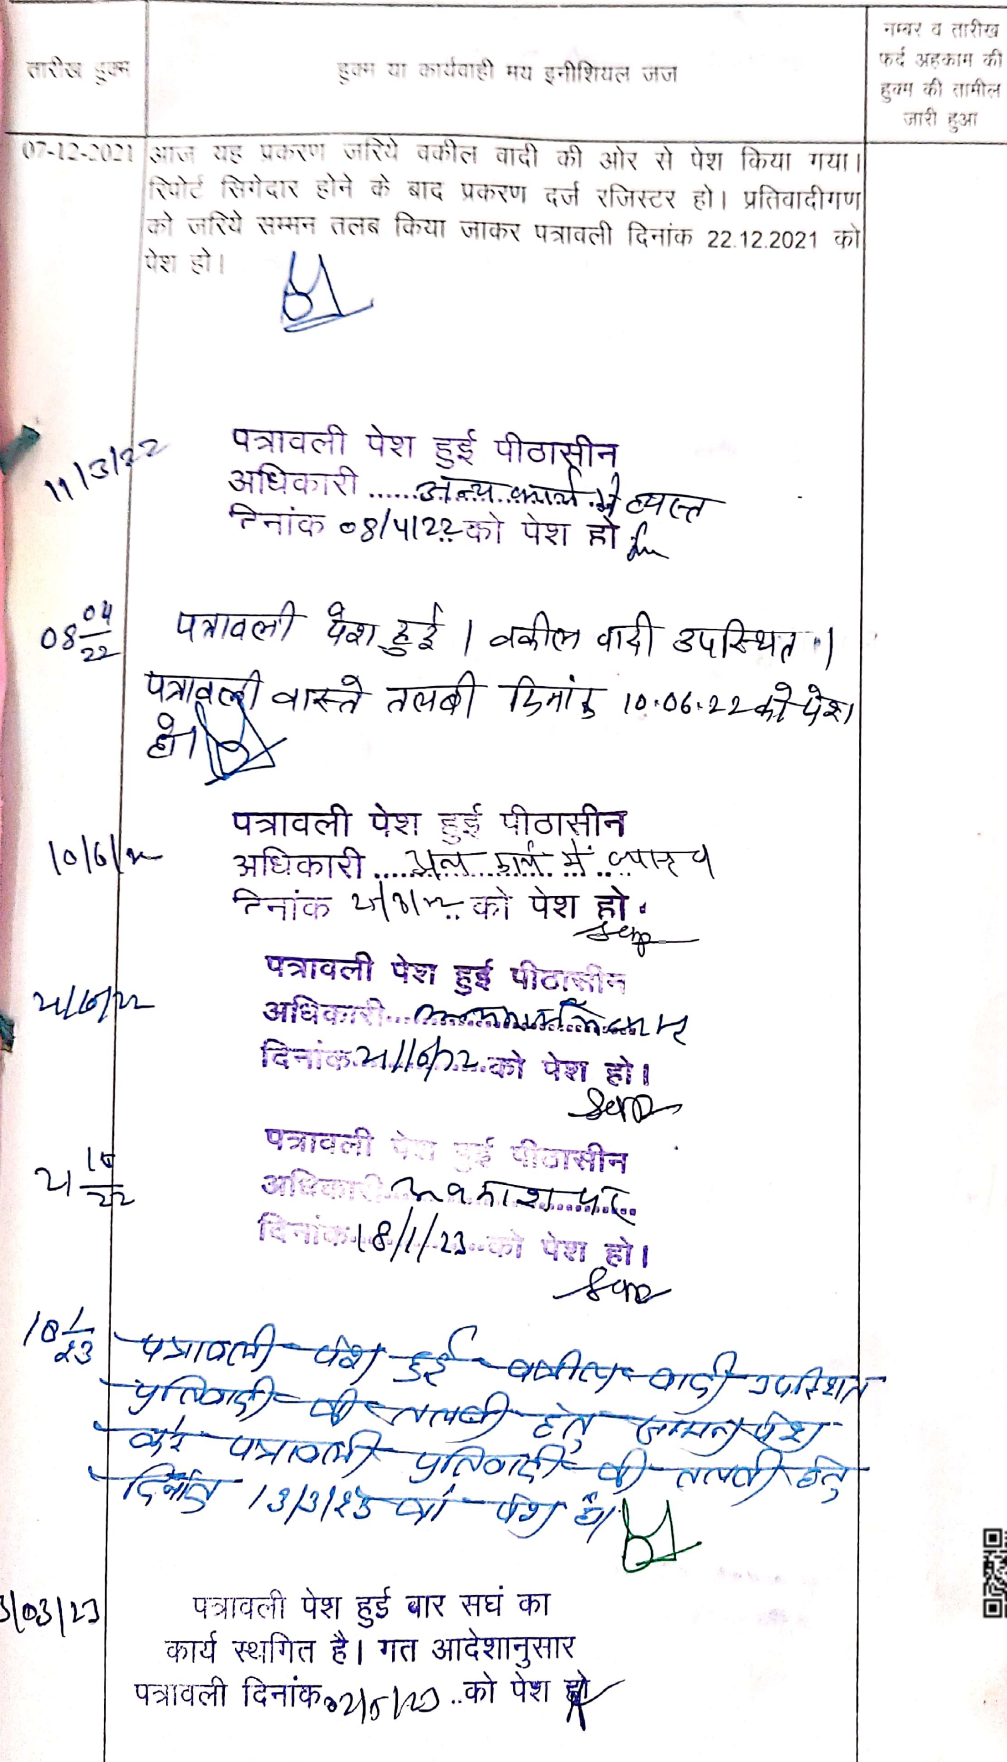 तारीख हुक्म
हुक्म या कार्यवाही मय इनीशियल जज
नम्बर व तारीख
फर्द अहकाम की
हुक्म की तामील
जारी हुआ
07-12-2021 आज यह प्रकरण जरिये वकील वादी की ओर से पेश किया गया।
रिपोर्ट सिगेदार होने के बाद प्रकरण दर्ज रजिस्टर हो। प्रतिवादीगण
को जरिये सम्मन तलब किया जाकर पत्रावली दिनांक 22.12.2021 को
पेश हो।
11/3/22 पत्रावली पेश हुई पीठासीन
अधिकारी ......अन्य कार्य में व्यस्त
दिनांक 08/4/22 को पेश हो
08 04/22 पत्रावली पेश हुई । वकील वादी उपस्थित ।
पत्रावली वास्ते तलबी दिनांक 10.06.22 को पेश
हो।
पत्रावली पेश हुई पीठासीन
10/6/22 अधिकारी ...... कार्य में
दिनांक को पेश हो
पत्रावली पेश हुई पीठासीन
अधिकारी
दिनांक को पेश हो।
पत्रावली पेश हुई पीठासीन
अधिकारी अवकाश पर
दिनांक 18/1/23 को पेश हो।
18 1/23 पत्रावली पेश हुई वकील वादी उपस्थित
प्रतिवादी की तलबी हेतु सम्मन पेश
करे पत्रावली प्रतिवादी की तलबी हेतु
दिनांक 13/3/23 को पेश हो।
3/03/23 पत्रावली पेश हुई बार सघं का
कार्य स्थगित है। गत आदेशानुसार
पत्रावली दिनांक 02/5/23 ..को पेश हो